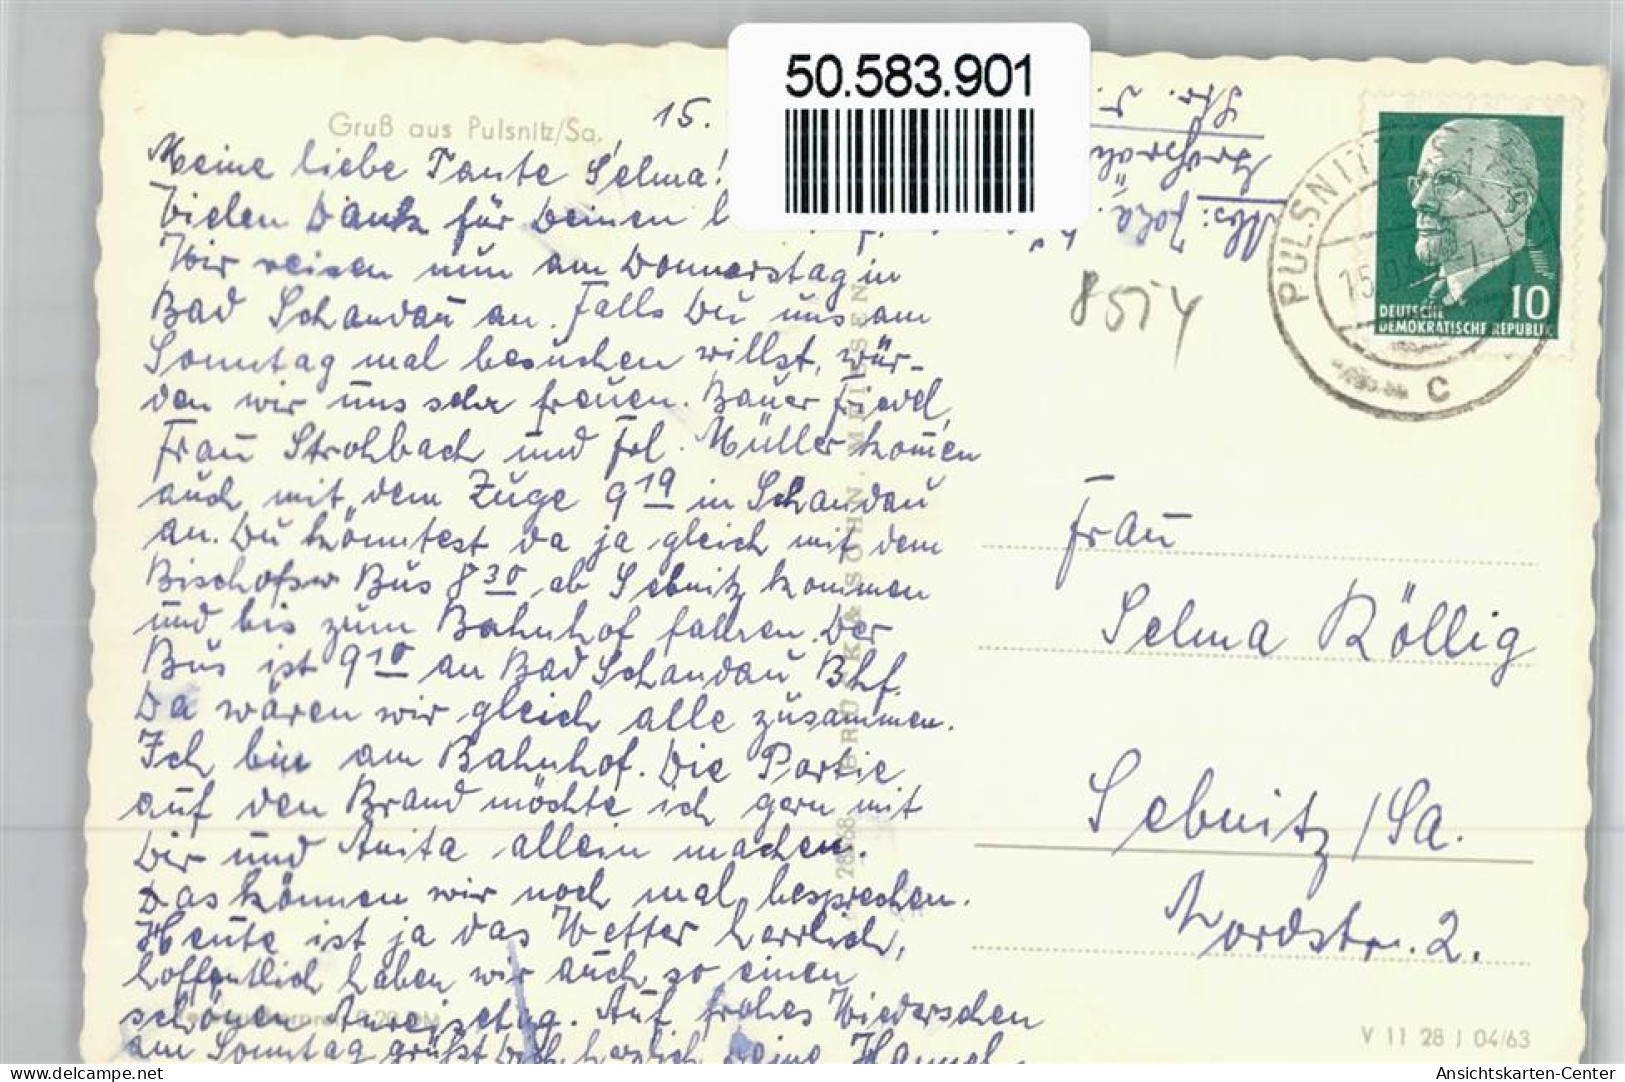 50.583.901
Gruß aus Pulsnitz/Sa.
15.
Meine liebe Tante Selma!
Vielen Dank für Deinen
Wir reisen nun am Donnerstag in
Bad Schandau an. Falls Du uns am
Sonntag mal besuchen willst, wür-
den wir uns sehr freuen. Bauer Friedel,
Frau Strohbach und Frl. Müller kom̄en
auch mit dem Zuge 9 19 in Schandau
an. Du könntest da ja gleich mit dem
Bischofsw Bus 8 30 ab Sebnitz kommen
und bis zum Bahnhof fahren. Der
Bus ist 9 10 an Bad Schandau Bhf.
Da wären wir gleich alle zusammen.
Ich bin am Bahnhof. Die Partie
auf den Brand möchte ich gern mit
Dir und Anita allein machen.
Das können wir noch mal besprechen.
Heute ist ja das Wetter herrlich,
hoffentlich haben wir auch so einen
schönen Anreisetag. Auf frohes Wiedersehen
am Sonntag grüßt Dich herzlich Deine Hannel
BRÜCK & SOHN, MEISSEN
Abs:
Str. 5.
8554
PULSNITZ (SA
15
C
DEUTSCHE
DEMOKRATISCHE REPUBLIK
10
Frau
Selma Röllig
Sebnitz /Sa.
Nordstr. 2.
V 11 28 J 04/63
www.delcampe.net
Ansichtskarten-Center